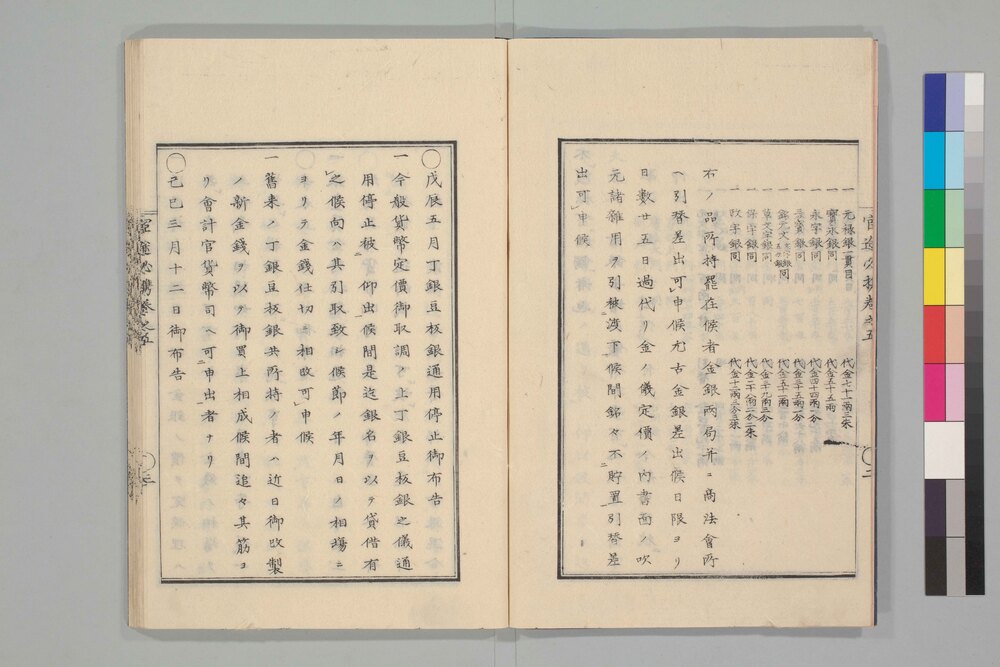 官途必携巻之五
一 元禄銀一貫目 代金七十一兩二朱
一 寳永銀同 代金五十五兩
一 永字銀同 代金四十四兩一分
一 三ツ寳銀同 代金三十五兩一分
一 銀同 代金五十一兩
一 草文字銀同 代金三十九兩三分
一 保字銀同 代金二十八兩二分二朱
一 政字銀同 代金十二兩三分三朱
右ノ品所持罷在候者金銀兩局并ニ商法會所
ヘ引替差出可申候尤古金銀差出候日限ヨリ
日數廿五日過代リ金ノ儀定價ノ内書面ノ吹
元諸雜用ヲ引被渡下候間銘々不貯置引替差
出可申候
二
○戊辰五月丁銀豆板銀通用停止御布告
一今般貨幣定價御取調ノ上丁銀豆板銀之儀通
用停止被仰出候間是迄銀名ヲ以テ貸借有
之候向ハ其引取致シ候節ノ年月日ノ相塲ニ
ヨリテ金錢仕切ニ相改可申候
一舊来ノ丁銀豆板銀共所持ノ者ハ近日御改製
ノ新金錢ヲ以テ御買上相成候間追々其筋ヨ
リ會計官貨幣司ヘ可申出者ナリ
○己巳三月十二日御布告
官途必携巻之五
三